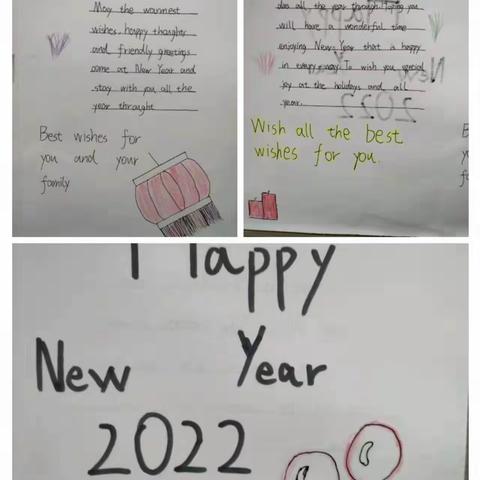 May the warmest
wishes, happy thoughts
and friendly greetings
come at New Year and
stay with you all the
year throught
Best wishes for
you and your
family
also all the year through. Hoping you
will have a wonderful time
enjoying New Year that is happy
in every way. To wish you special
joy at the holidays and all
year.
Wish all the best
wishes for you.
Happy
New Year
2022